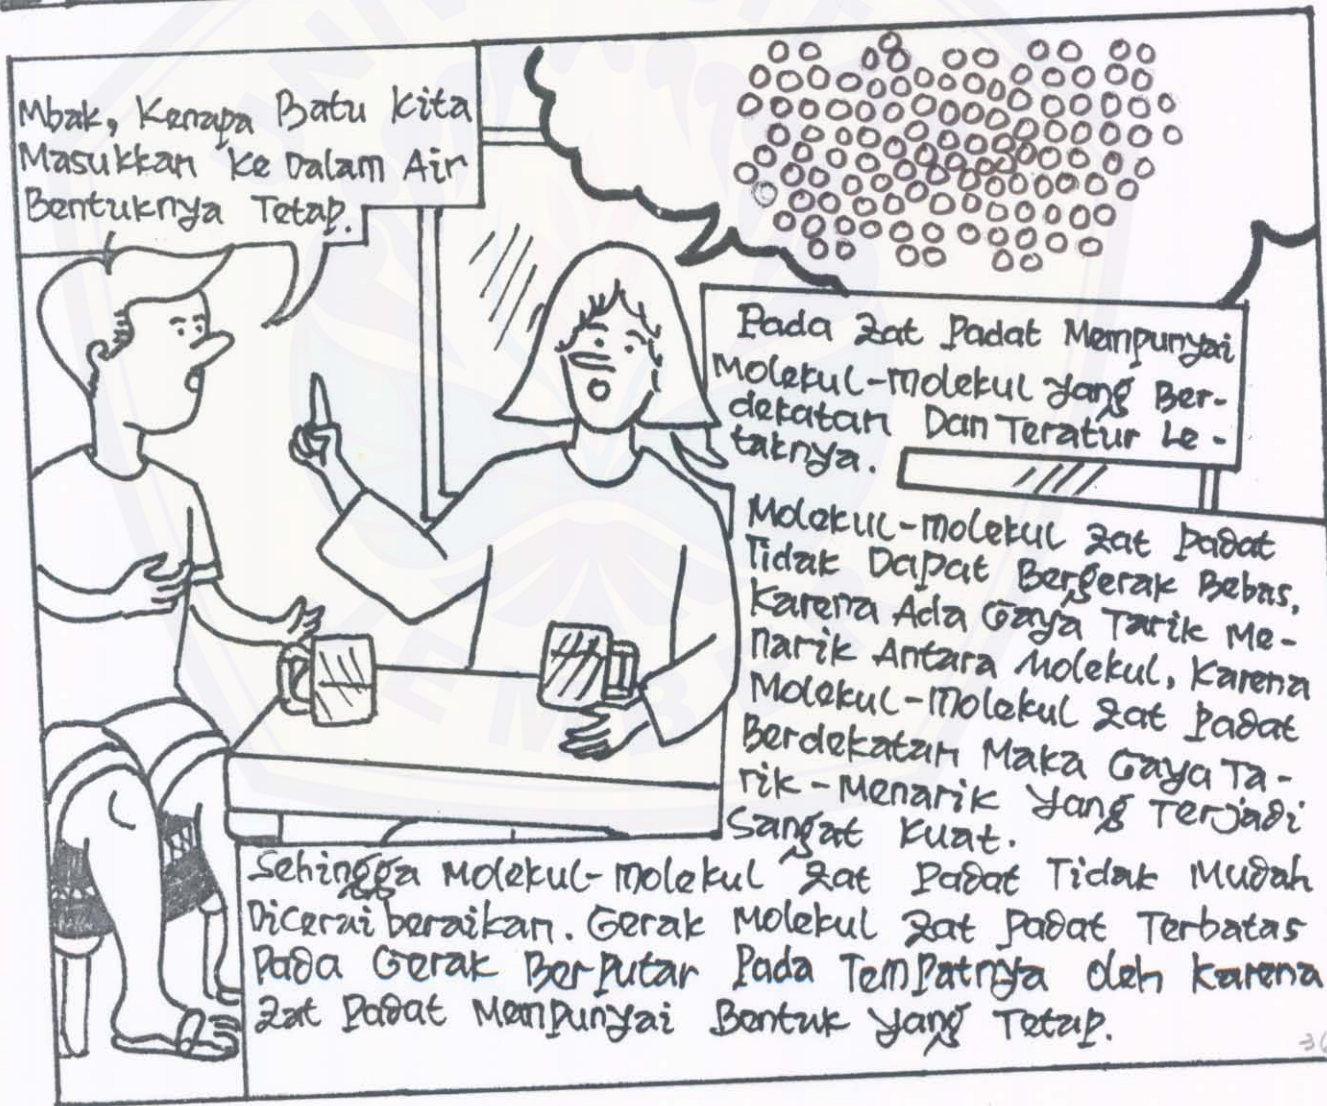 Mbak, Kenapa Batu Kita
Masukkan Ke Dalam Air
Bentuknya Tetap.
Pada Zat Padat Mempunyai
Molekul-molekul yang Ber-
dekatan Dan Teratur Le-
taknya.
Molekul-molekul Zat Padat
Tidak Dapat Bergerak Bebas,
Karena Ada Gaya Tarik Me-
narik Antara Molekul, Karena
Molekul-Molekul Zat Padat
Berdekatan Maka Gaya Ta-
rik-Menarik Yang Terjadi
Sangat Kuat.
Sehingga Molekul-molekul Zat Padat Tidak Mudah
Dicerai beraikan. Gerak Molekul Zat Padat Terbatas
Pada Gerak Berputar Pada Tempatnya oleh Karena
Zat Padat Mempunyai Bentuk Yang Tetap.